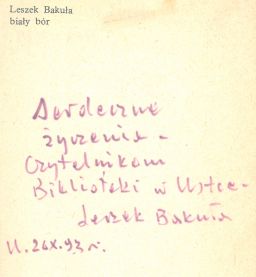 Leszek Bakuła
biały bór
Serdeczne
życzenia –
Czytelnikom
Biblioteki w Ustce –
Leszek Bakuła
U. 26 X. 93 r.